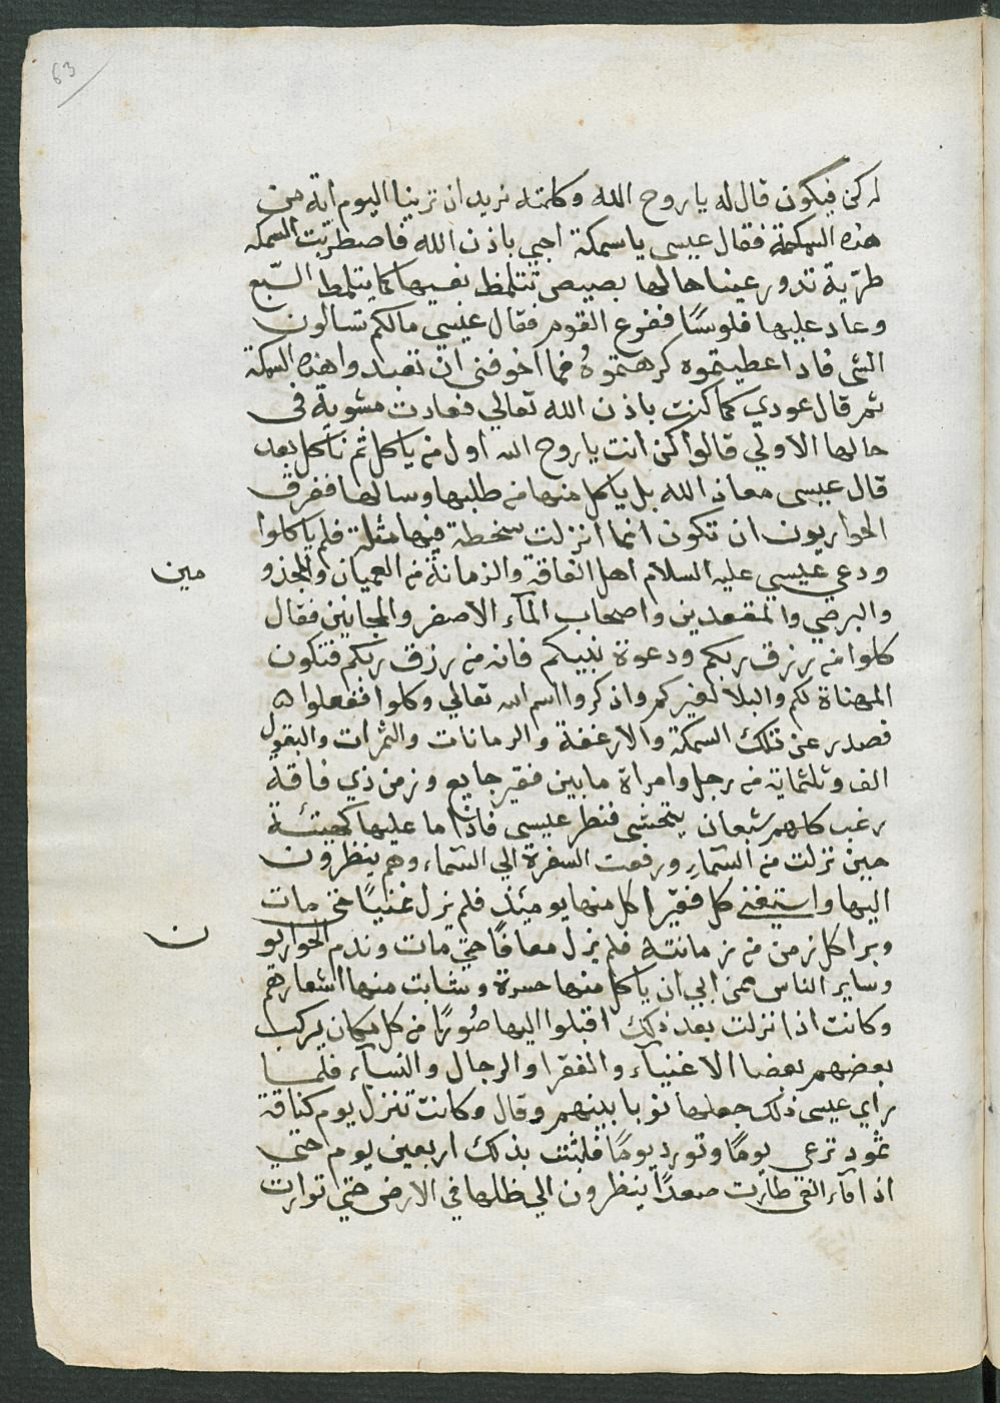 63
له كن فيكون قال له يا روح الله وكلمته نريد ان ترينا اليوم اية من
هذه السمكة فقال عيسى يا سمكة احيي باذن الله فاضطربت السمكة
طرّية تدور عيناها لها بصيص تتلمظ نفسها كما يتلمظ السّبع
وعاد عليها فلوسًا ففزع القوم فقال عيسي مالكم تسالون
الشي فاذا اعطيتموه كرهتموهُ فما اخوفني ان تعبدوا هذه السمكة
ثم قال عودي كما كنت باذن الله تعالي فعادت مشوية في
حالها الاولي قالوا كن انت يا روح الله اول من ياكل ثم ناكل بعد
قال عيسى معاذ الله بل ياكل منها من طلبها وسالها ففرق
الحواريون ان تكون انما انزلت سخطة فيها مثلة فلم ياكلوا
ودعي عيسي عليه السلام اهل الفاقة والزمانة من العميان والمجذو مين
والبرصي والمقعدين واصحاب المآء الاصفر والمجانين فقال
كلوا من رزق ربكم ودعوة نبيكم فانه من رزق ربكم فتكون
المهناة لكم والبلا لغيركم واذكروا اسم الله تعالي وكلوا ففعلوا
فصدر عن تلك السمكة والارغفة والرمانات والثمرات والبقول
الف وثلثماية من رجل وامراة ما بين فقير جايع وزمن ذي فاقة
رغب كلهم شبعان يتجشى فنظر عيسى فاذا ما عليها كهيئة
حين نزلت من السّمآء ورفعت السفرة الي السّمآء وهم ينظرون
اليها واستغني كل فقير اكل منها يومئذ فلم يزل غنيًا حتى مات
وبرا كل زمن من زمانته فلم يزل معافًا حتي مات وندم الحواريو ن
وساير الناس ممن ابي ان ياكل منها حسرة وشابت منها اشعارهم
وكانت اذا نزلت بعد ذلك اقبلوا اليها صُورًا من كل مكان يركب
بعضهم بعضا الاغنيآء والفقرا والرجال والنسآء فلما
راي عيسى ذلك جعلها نوبا بينهم وقال وكانت تنزل يوم كناقة
ثمود ترعى يومًا وتورد يومًا فلبثت بذلك اربعين يوم حتي
اذا فآء الفئ طارت صعدًا ينظرون الي ظلها في الارض حتي توارت